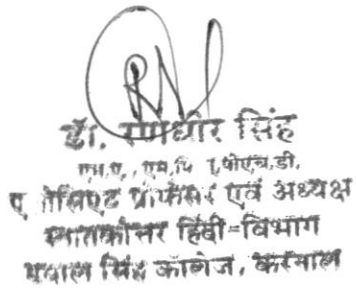 डॉ. रणधीर सिंह
एम.ए., एम.फि ,पीएच.डी.
ए ोसिएट प्रोफेसर एवं अध्यक्ष
स्नातकोत्तर हिंदी-विभाग
दयाल सिंह कॉलेज, करनाल